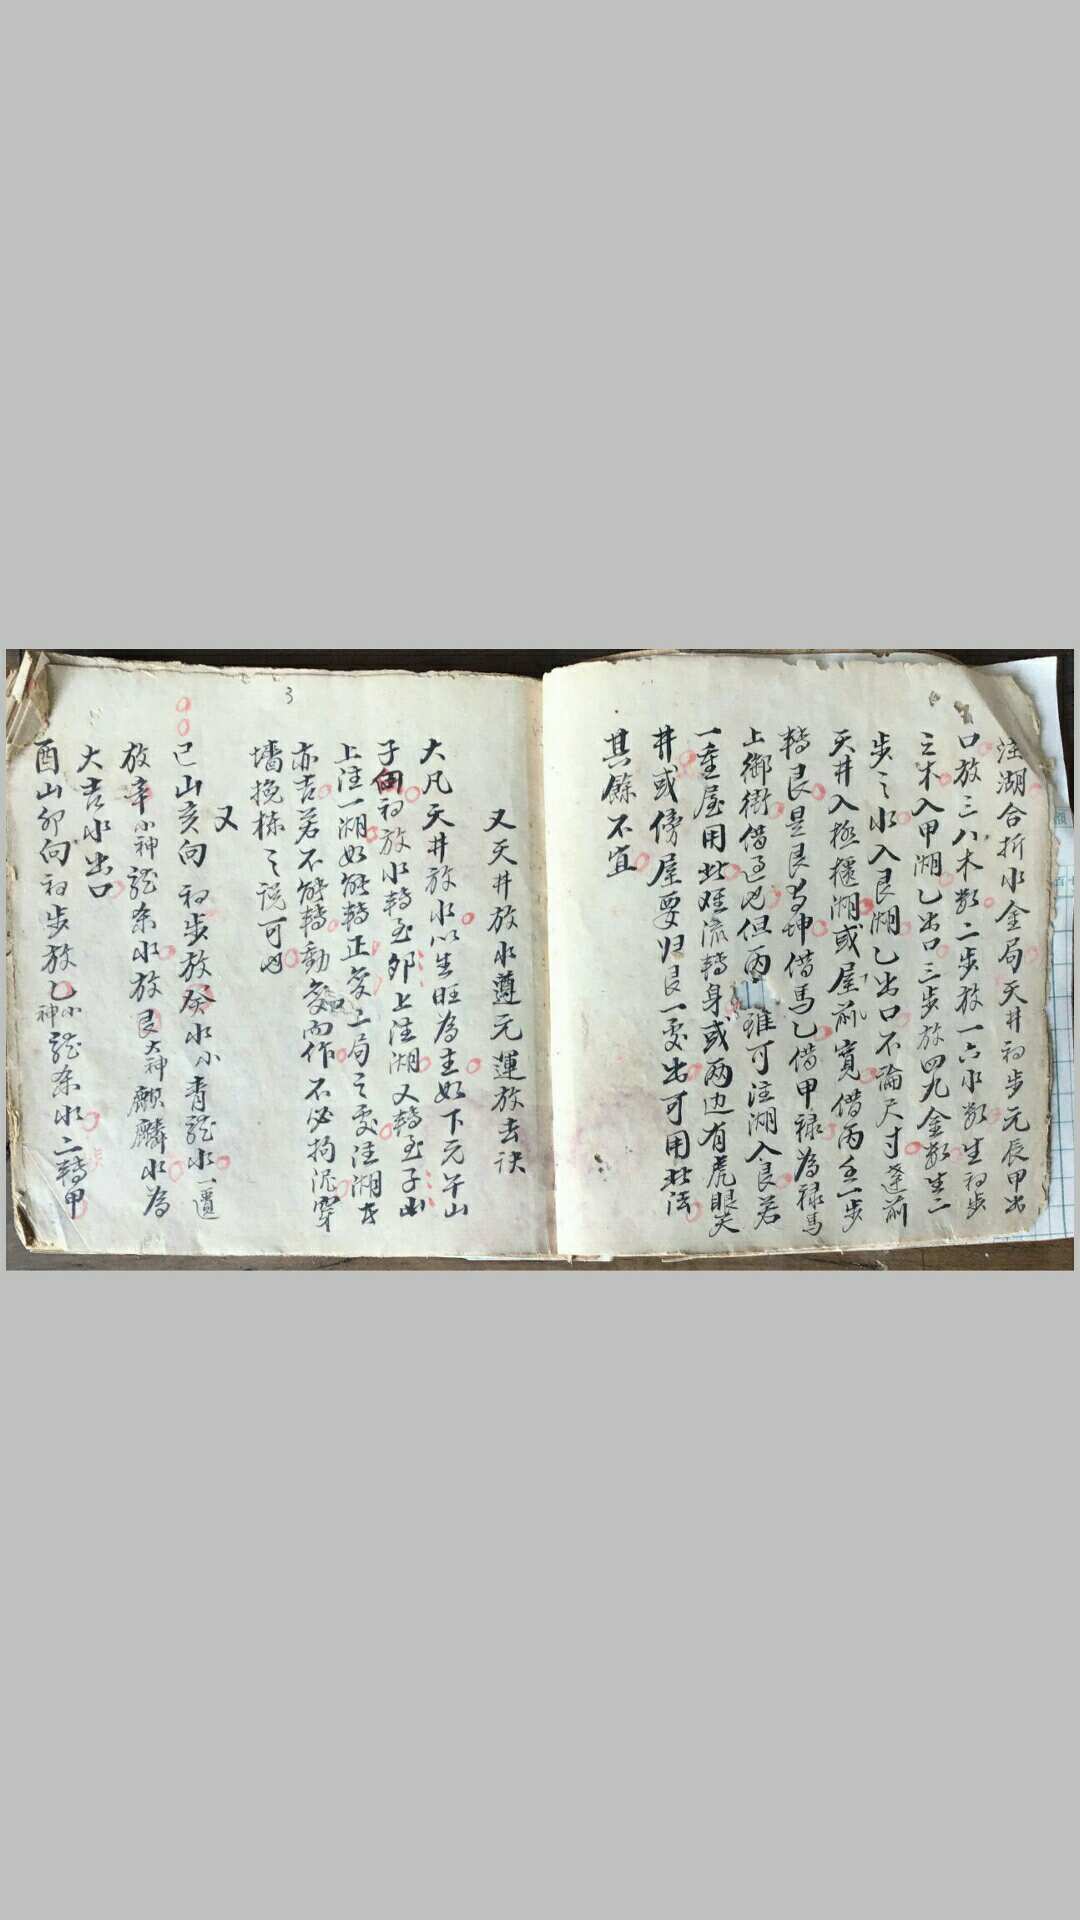 注湖合折水金局天井初步元辰甲出
口放三八木数二步放一六水数生初步
之木入甲湖乙出口三步放四九金数生二
步之水入艮湖乙出口不論尺寸逢前
天井入極樞湖或屋前寬借丙壬一步
轉艮是艮為坤借馬乙借甲禄為禄馬
上御街借過也但丙 雖可注湖入艮若
一重屋用此难流轉身或两边有虎眼天
井或傍屋要归艮一處出可用此法
其餘不宜
又天井放水遵元運放去诀
大凡天井放水以生旺為主如下元午山
子向初放水轉至卯上注湖又轉至子山
上注一湖如能轉正爻二局之爻注湖者
亦吉若不能轉動爻而作不必拘泥穿
墻挽栋之说可
又
己山亥向 初步放癸水小青龍水
放辛小神龍条水放艮大神麒麟水為
大吉水出口
酉山卯向初步放乙小神龍条水二轉甲
3